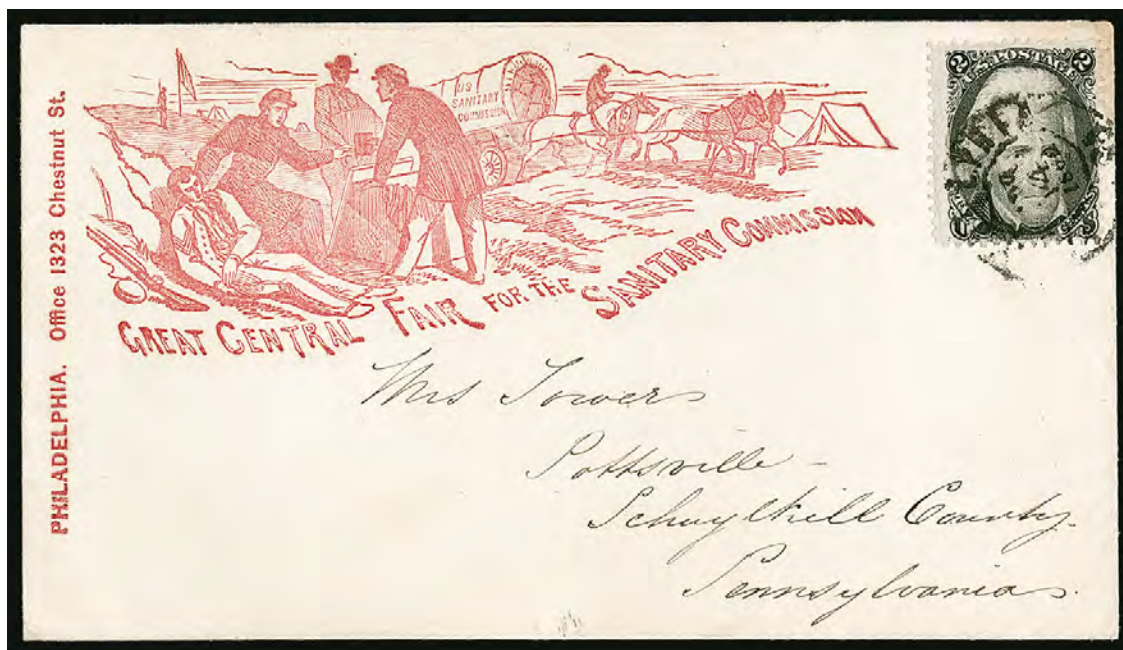 PHILADELPHIA. Office 1323 Chestnut St.
US
SANITARY
COMMISSION
GREAT CENTRAL FAIR FOR THE SANITARY COMMISSION
2 U.S. POSTAGE 2
Mrs Towers
Pottsville -
Schuylkill County.
Pennsylvania.